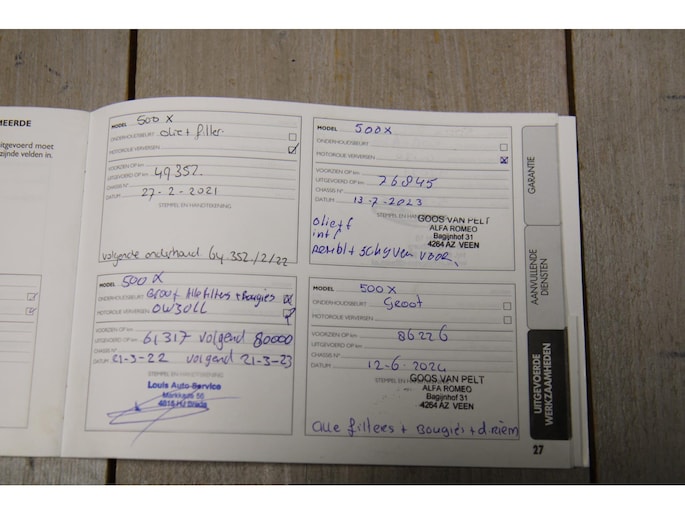 MEERDE
itgevoerd moet
zijnde velden in.
MODEL 500 X
ONDERHOUDSBEURT olie + filter.
MOTOROLIE VERVERSEN
VOORZIEN OP km
UITGEVOERD OP km 49352.
CHASSIS N°
DATUM 27-2-2021
STEMPEL EN HANDTEKENING
volgende onderhoud 64.352/2/22
MODEL 500X
ONDERHOUDSBEURT
MOTOROLIE VERVERSEN
VOORZIEN OP km
UITGEVOERD OP km 76845
CHASSIS N°
DATUM 13-7-2023
STEMPEL EN HAND
GOOS VAN PELT
ALFA ROMEO
Bagijnhof 31
4264 AZ VEEN
olie + f
int f
Rembl + schyven voor.
MODEL 500 X
ONDERHOUDSBEURT Groot Alle filters + Bougies
MOTOROLIE VERVERSEN 0W30LL
VOORZIEN OP km
UITGEVOERD OP km 61317 volgend 80000
CHASSIS N°
DATUM 21-3-22 volgend 21-3-23
STEMPEL EN HANDTEKENING
Louis Auto-Service
Markkade 50
MODEL 500X
ONDERHOUDSBEURT Groot
MOTOROLIE VERVERSEN
VOORZIEN OP km 86226
UITGEVOERD OP km
CHASSIS N°
DATUM 12-6-2024
STEMPEL EN HAND
GOOS VAN PELT
ALFA ROMEO
Bagijnhof 31
4264 AZ VEEN
alle filters + Bougies + d.riem
GARANTIE
AANVULLENDE
DIENSTEN
UITGEVOERDE
WERKZAAMHEDEN
27